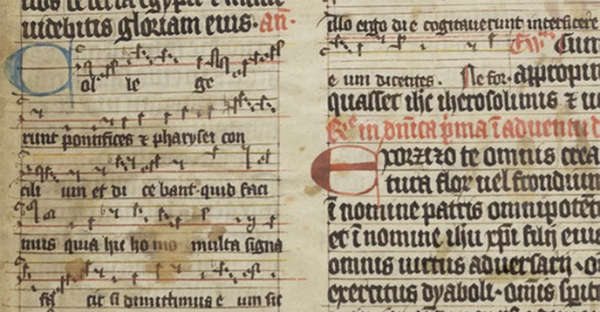 uidebitis gloriam eius. an̄.
Col le ge
runt pontifices ⁊ pharysei con
cili um et di ce bant. quid faci
mus quia hic ho mo multa signa
fa cit si dimittimus e um sic
illo ergo die cogitauerunt interficere
Cum
e um dicentes. Ne for. appropin
quasset ihc iherosolimis ⁊ u
in dn̄ica p̄ma ī aduentu d
Exorzizo te omnis crea
tura flor uel frondium
ī nomine patris omnipotēt
et ī nomine ihu xp̄i filij eius
omnis uirtus aduersarij. o
exercitus dyaboli. om̄is spūi